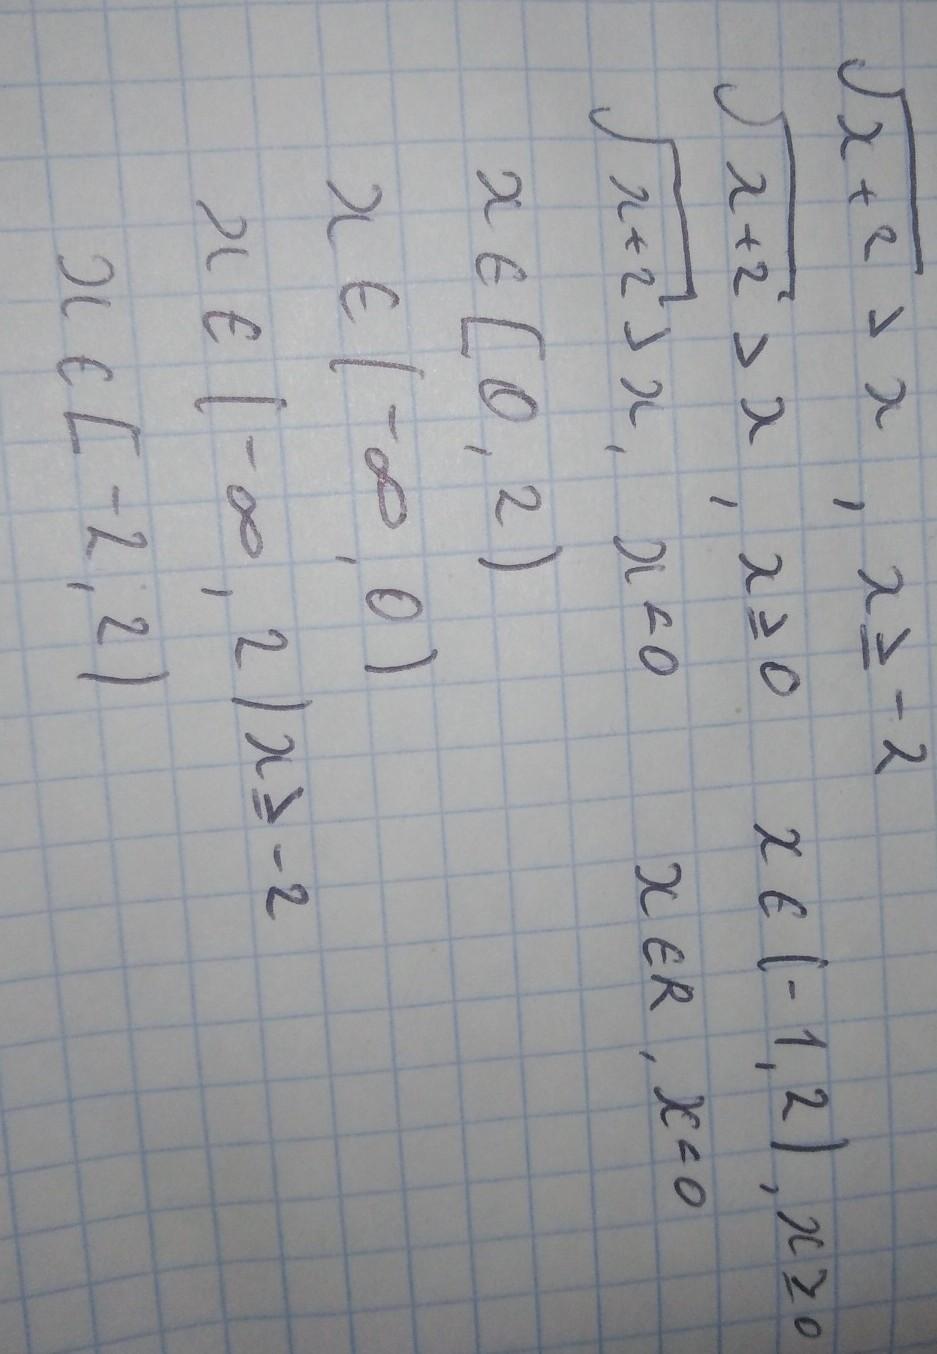 √x+2 > x , x ≥ -2
√x+2 > x , x ≥ 0 x ∈ (-1, 2) , x ≥ 0
√x+2 > x , x < 0 x ∈ R , x < 0
x ∈ [0, 2)
x ∈ (-∞, 0)
x ∈ (-∞, 2) x ≥ -2
x ∈ [-2, 2)